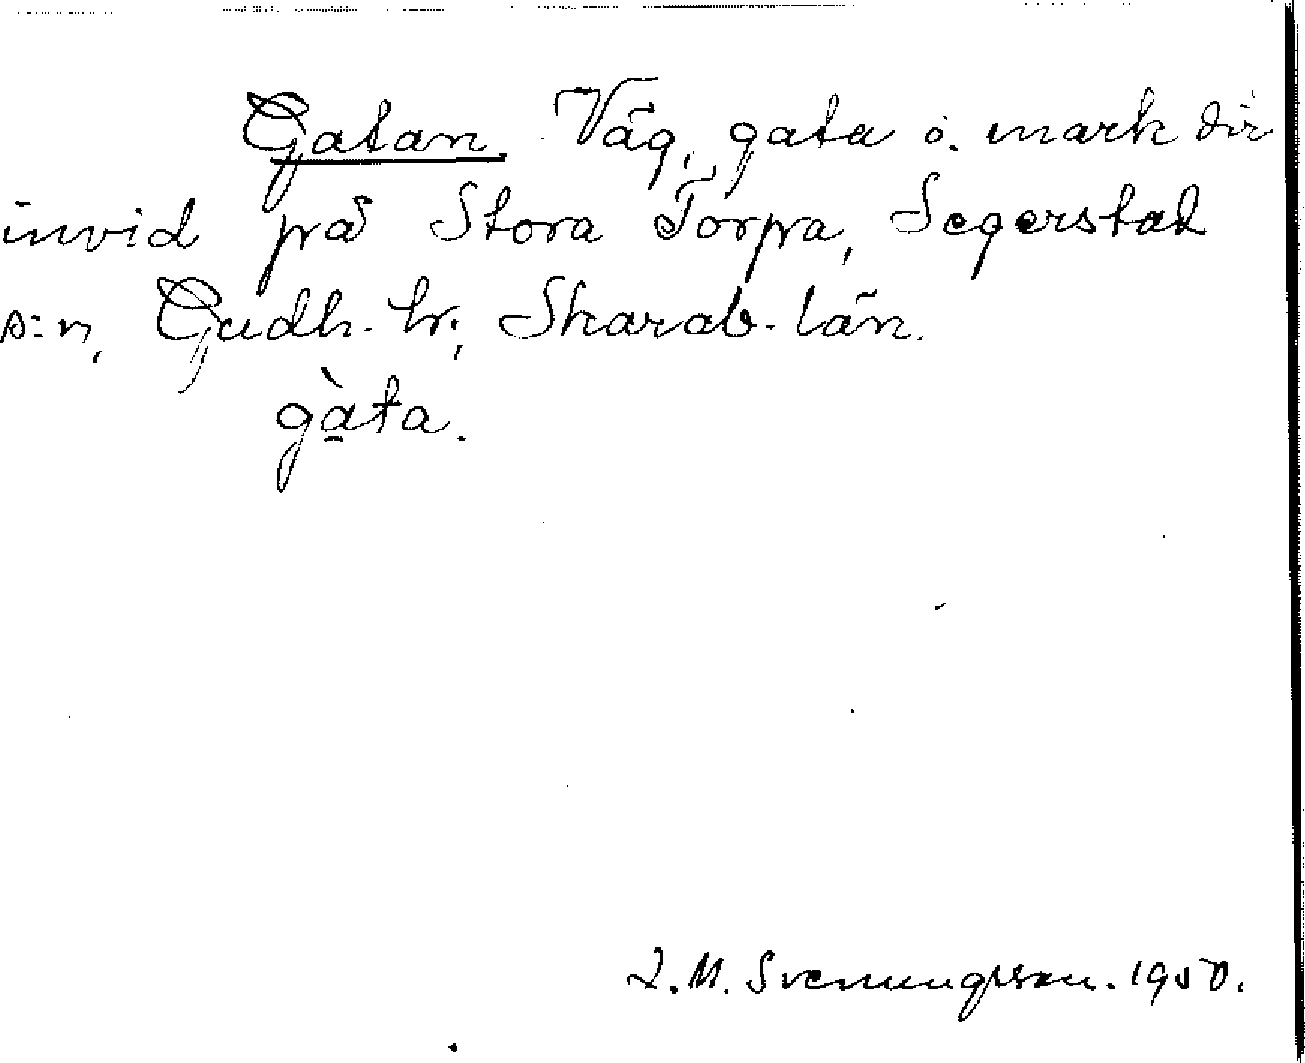 Gatan. Väg, gata o. mark där
invid på Stora Torpa, Segerstad
s:n, Gudh. hr; Skarab. län.
gàta.
L. M. Svenungsson. 1950.